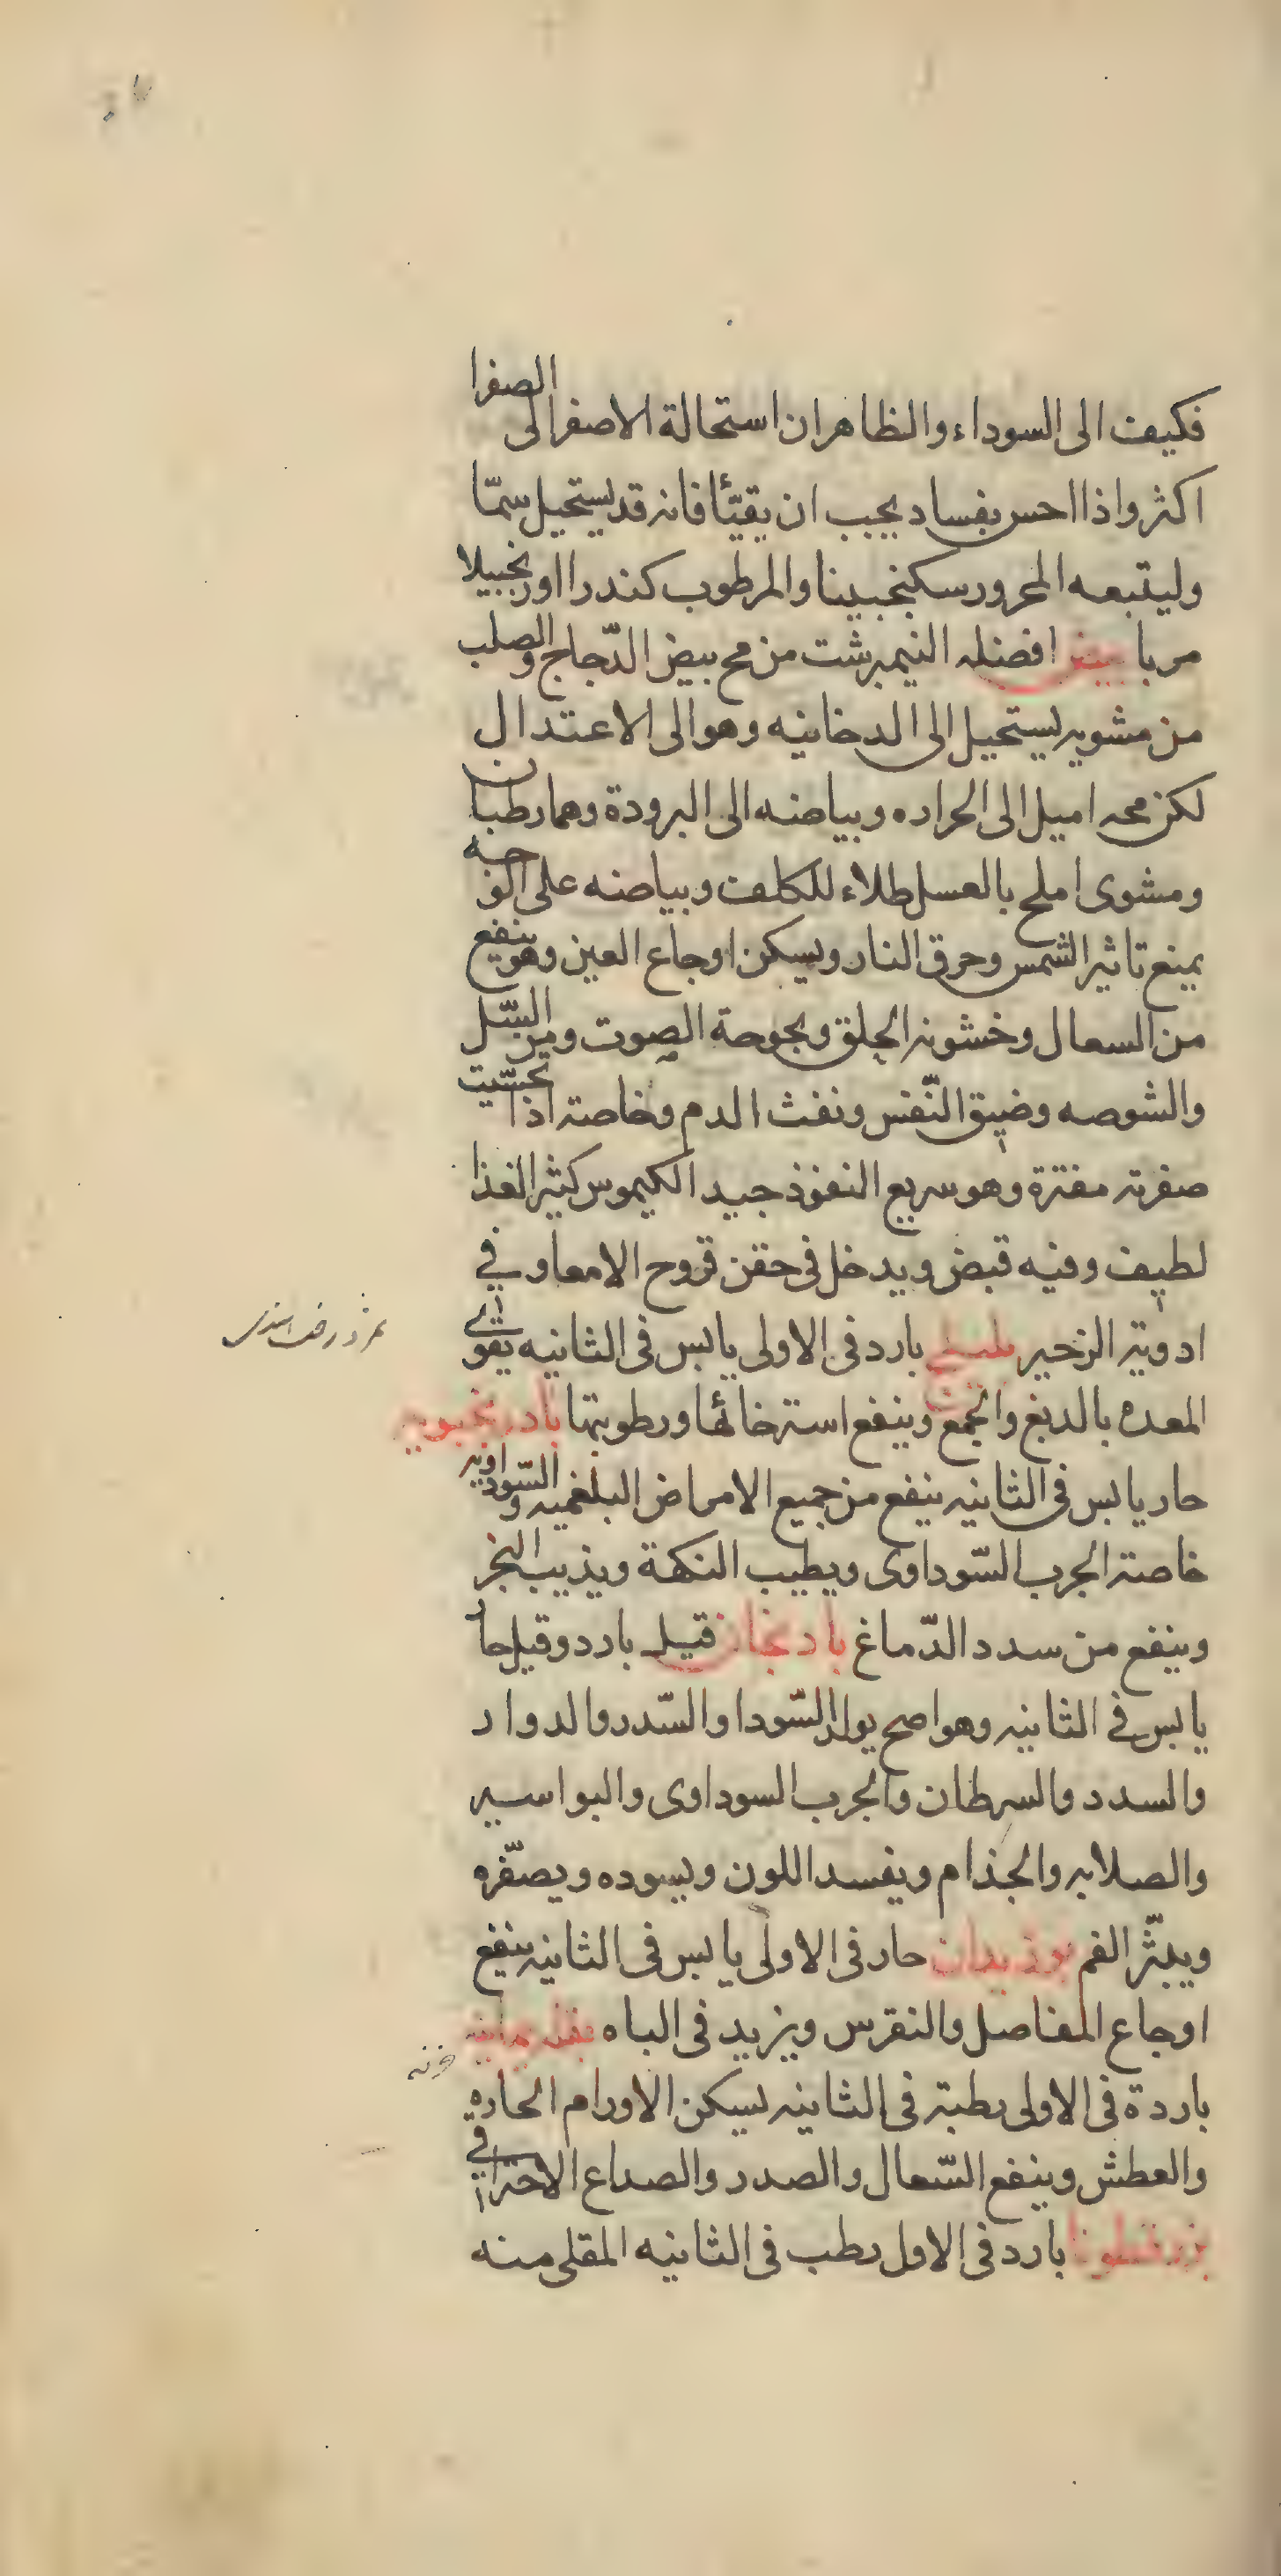 فكيف الى السوداء والظاهر ان استحالة الاصفر الى الصفرا
اكثر واذا احس بفساد يجب ان يقيّأ فانه قد يستحيل سمّا
وليتبعه المحرور سكنجبينا والمرطوب كندرا او زنجبيلا
مربا بيض افضله النيمبرشت من مح بيض الدّجاج والصلب
من مشويه يستحيل الى الدخانيه وهو الى الاعتدال
لكن محه اميل الى الحراره وبياضه الى البرودة وهما رطبان
ومشوى املح بالعسل طلاء للكلف وبياضه على الوجه
يمنع تاثير الشمس وحرق النار ويسكن اوجاع العين وهو ينفع
من السعال وخشونه الحلق وبحوحة الصوت ومن السّل
والشوصه وضيق النّفس ونفث الدم وخاصته اذا تحسّيت
صفرته مفترة وهو سريع النفوذ جيد الكيموس كثير الغذا
لطيف وفيه قبض ويدخل فى حقن قروح الامعا وفي
ادوية الزحير بليلج بارد فى الاولى يابس فى الثانيه يقوى
المعده بالدبغ والجمع وينفع استرخائها ورطوبتها بادرنجبويه
حار يابس فى الثانيه ينفع من جميع الامراض البلغميه والسّوداويه
خاصته الجرب السّوداوى ويطيب النكهة ويذيب البخر
وينفع من سدد الدّماغ بادنجان قيل بارد وقيل حار
يابس في الثانيه وهو اصح يولد السّودا والسّدر والدوار
والسدد والسرطان والجرب السوداوى والبواسير
والصلابه والجذام ويفسد اللون ويسوده ويصفّره
ويبثّر الفم بوزيدان حار فى الاولى يابس فى الثانيه ينفع
اوجاع المفاصل والنقرس ويزيد فى الباه بقله يمانيه
باردة فى الاولى رطبة فى الثانيه يسكن الاورام الحاره
والعطش وينفع السّعال والصدر والصداع الاحتراقي
بزرقطونا بارد فى الاول رطب فى الثانيه المقلى منه